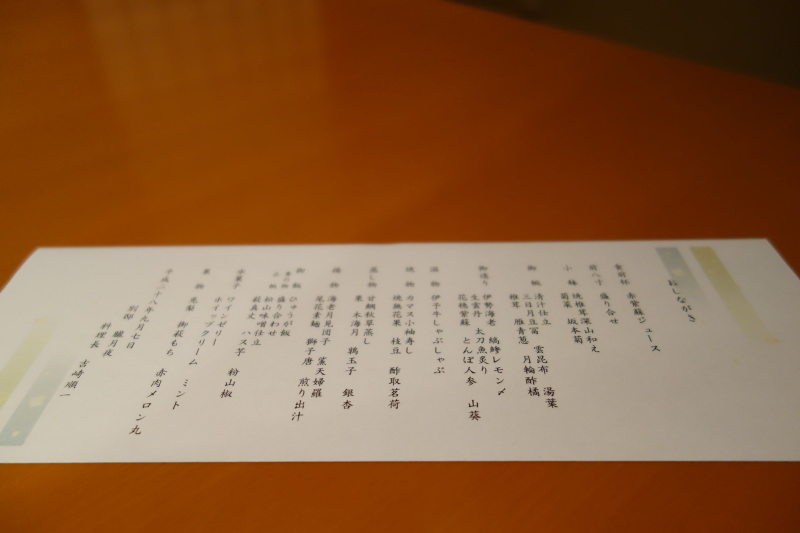 おしながき
食前酒 赤紫蘇ジュース
前八寸 盛り合せ
小鉢 焼椎茸深山和え
菊菜 坂本菊
御椀 清汁仕立 雲昆布 湯葉
三日月豆富 月輪酢橘
椎茸 雁青葱
御造り 伊勢海老 縞鯵レモン〆
生雲丹 太刀魚炙り
花穂紫蘇 とんぼ人参 山葵
温物 伊予牛しゃぶしゃぶ
焼物 カマス小袖寿し
焼無花果 枝豆 酢取茗荷
蒸し物 甘鯛秋草蒸し
栗 木海月 鶉玉子 銀杏
揚物 海老月見団子 薫天婦羅
尾花素麺 獅子唐 煎り出汁
御飯 ひゅうが飯
香の物 盛り合わせ
止椀 粉山味噌仕立
ハス芋 粉山椒
水菓子 ワインゼリー
ホイップクリーム ミント
果物 鬼梨 御萩もち 赤肉メロン丸
平成二十八年九月七日
別邸 朧月夜
料理長 吉崎順一